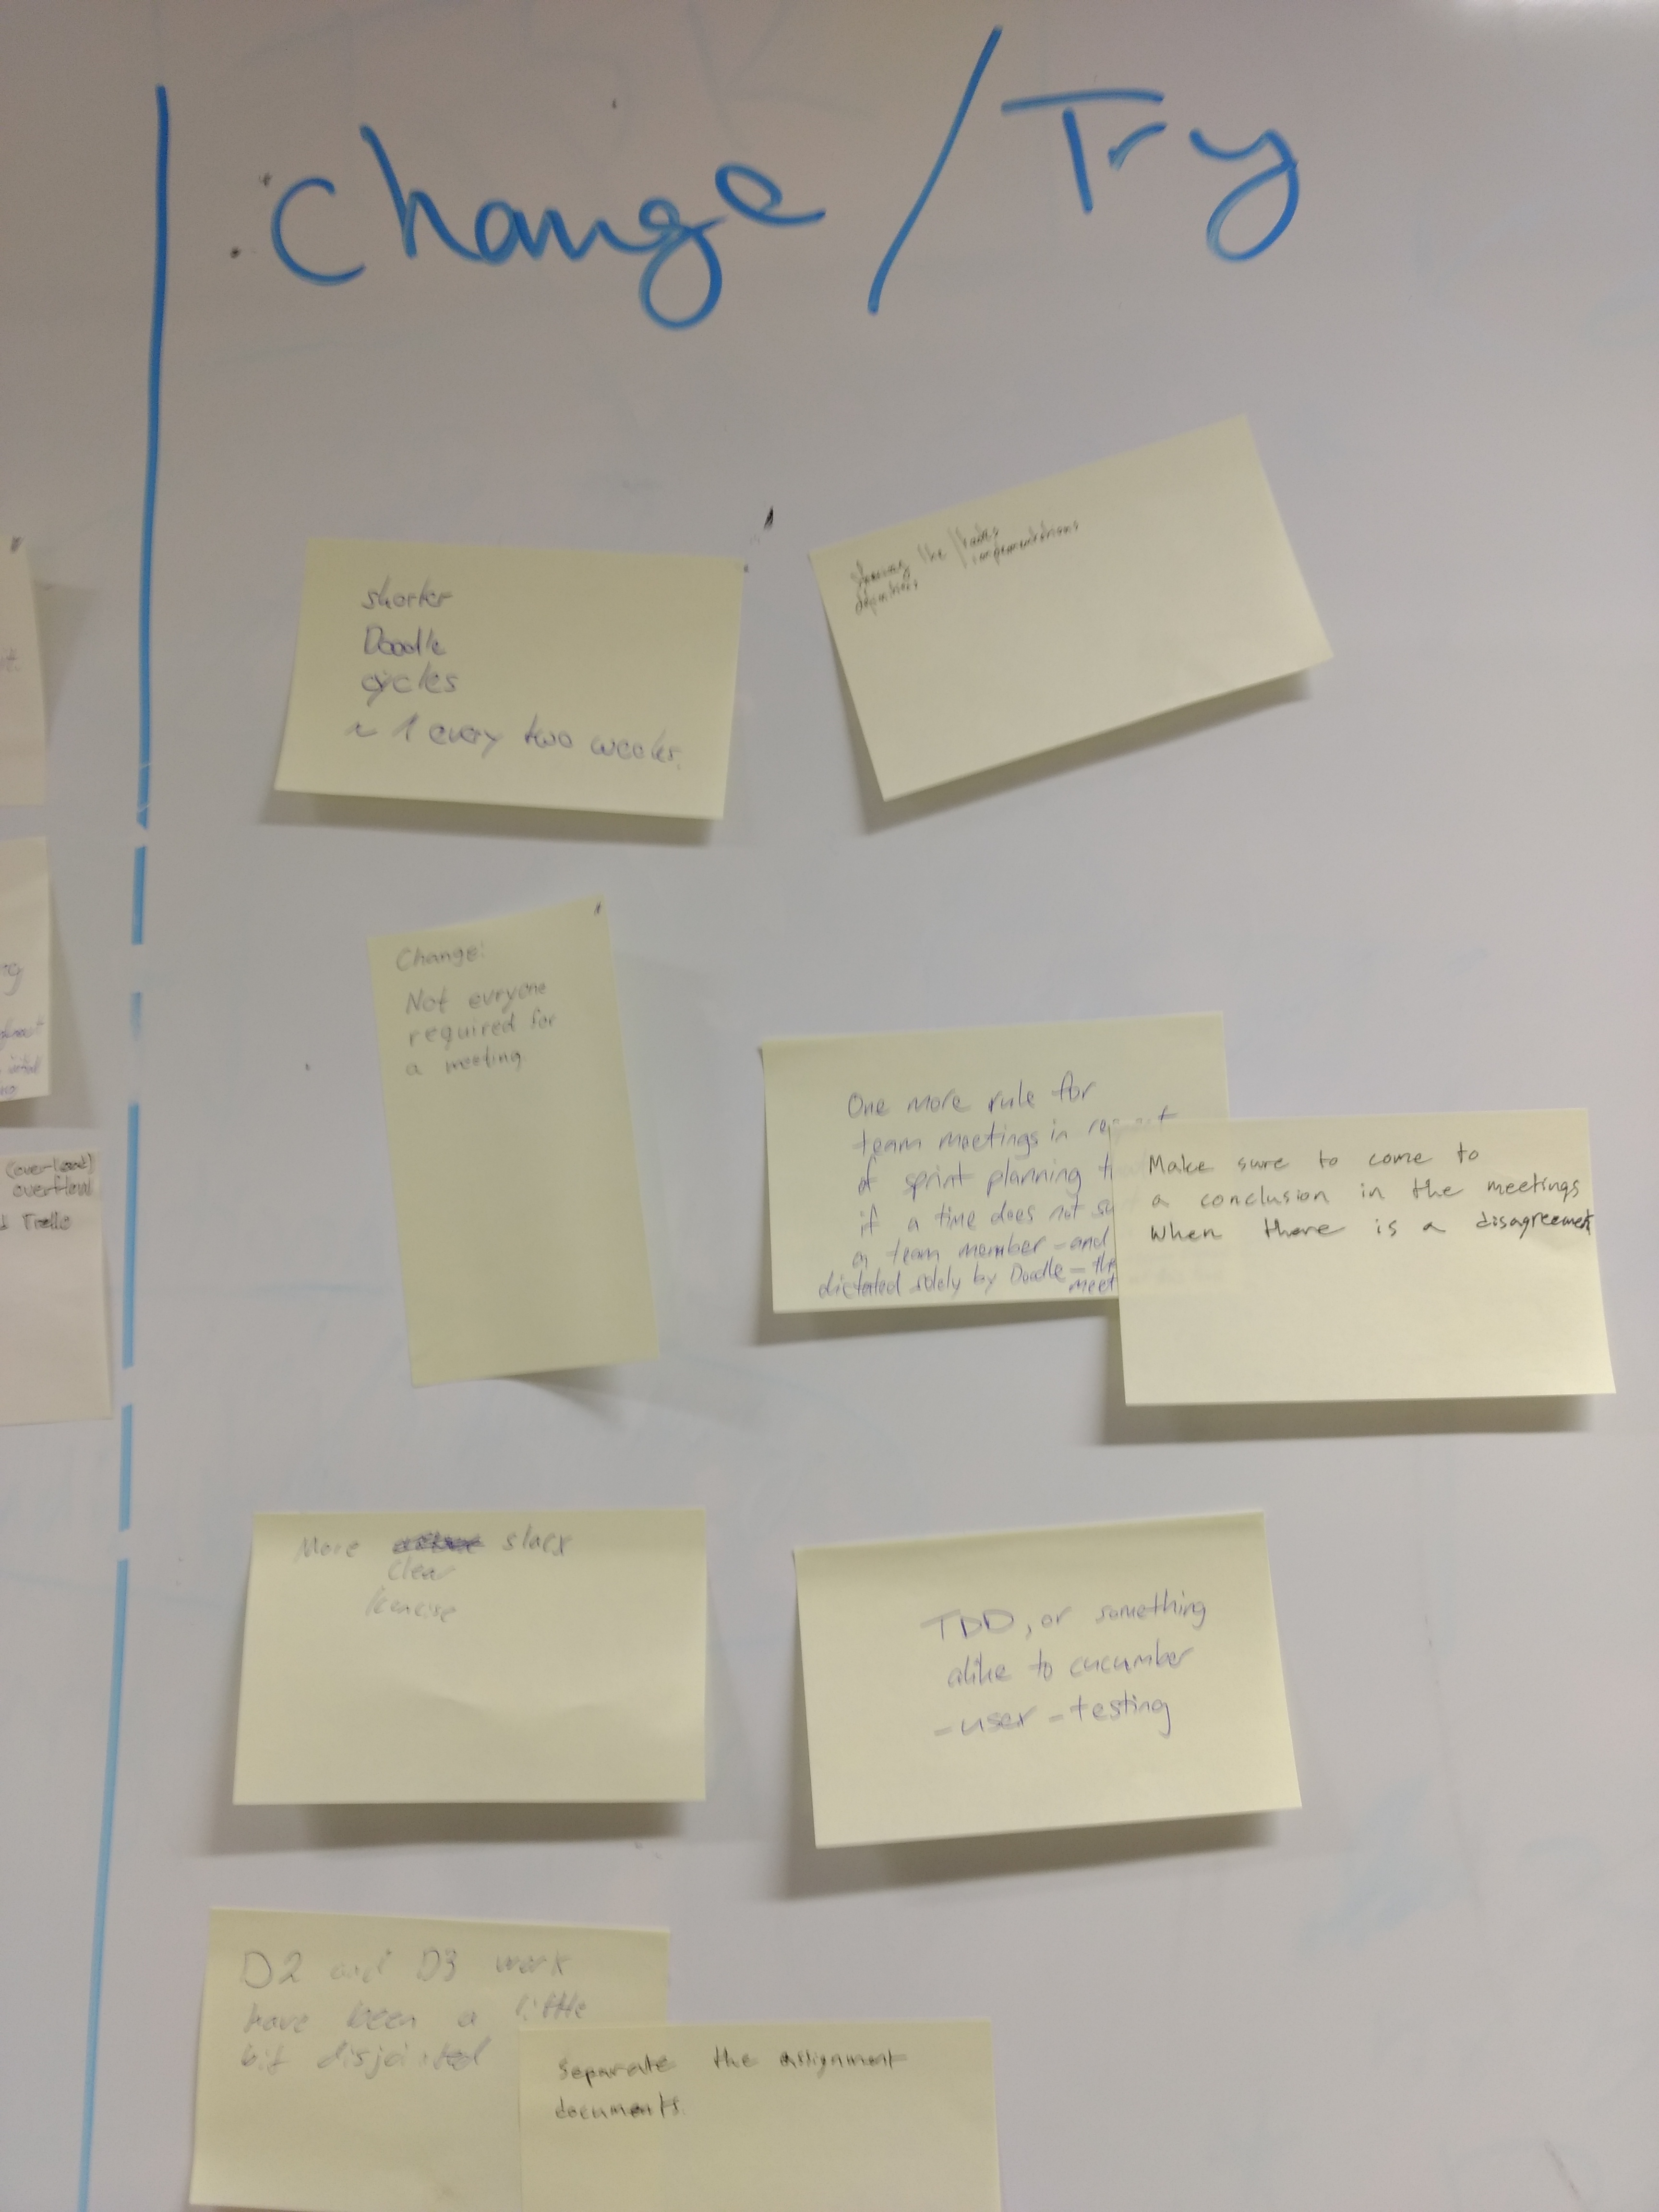 Change / Try
shorter
Doodle
cycles
~ 1 every two weeks.
the
implementations
Change!
Not evryone
required for
a meeting
One more rule for
team meetings in
of sprint planning
if a time does not
a team member - and
dictated solely by Doodle -
meet
Make sure to come to
a conclusion in the meetings
when there is a disagreement
More slack
clear
/concise
TDD, or something
alike to cucumber
-user-testing
D2 and D3 work
have been a little
bit disjointed
Separate the assignment
documents.
(overload)
overflow
Trello